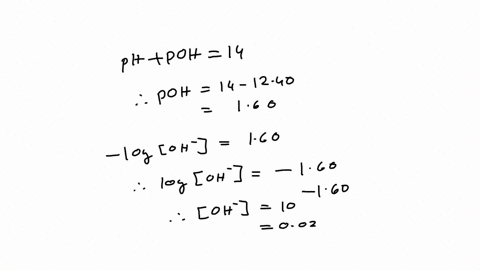 pH + pOH = 14
∴ pOH = 14 - 12.40
= 1.60
-log [OH⁻] = 1.60
∴ log [OH⁻] = - 1.60
∴ [OH⁻] = 10^-1.60
= 0.02